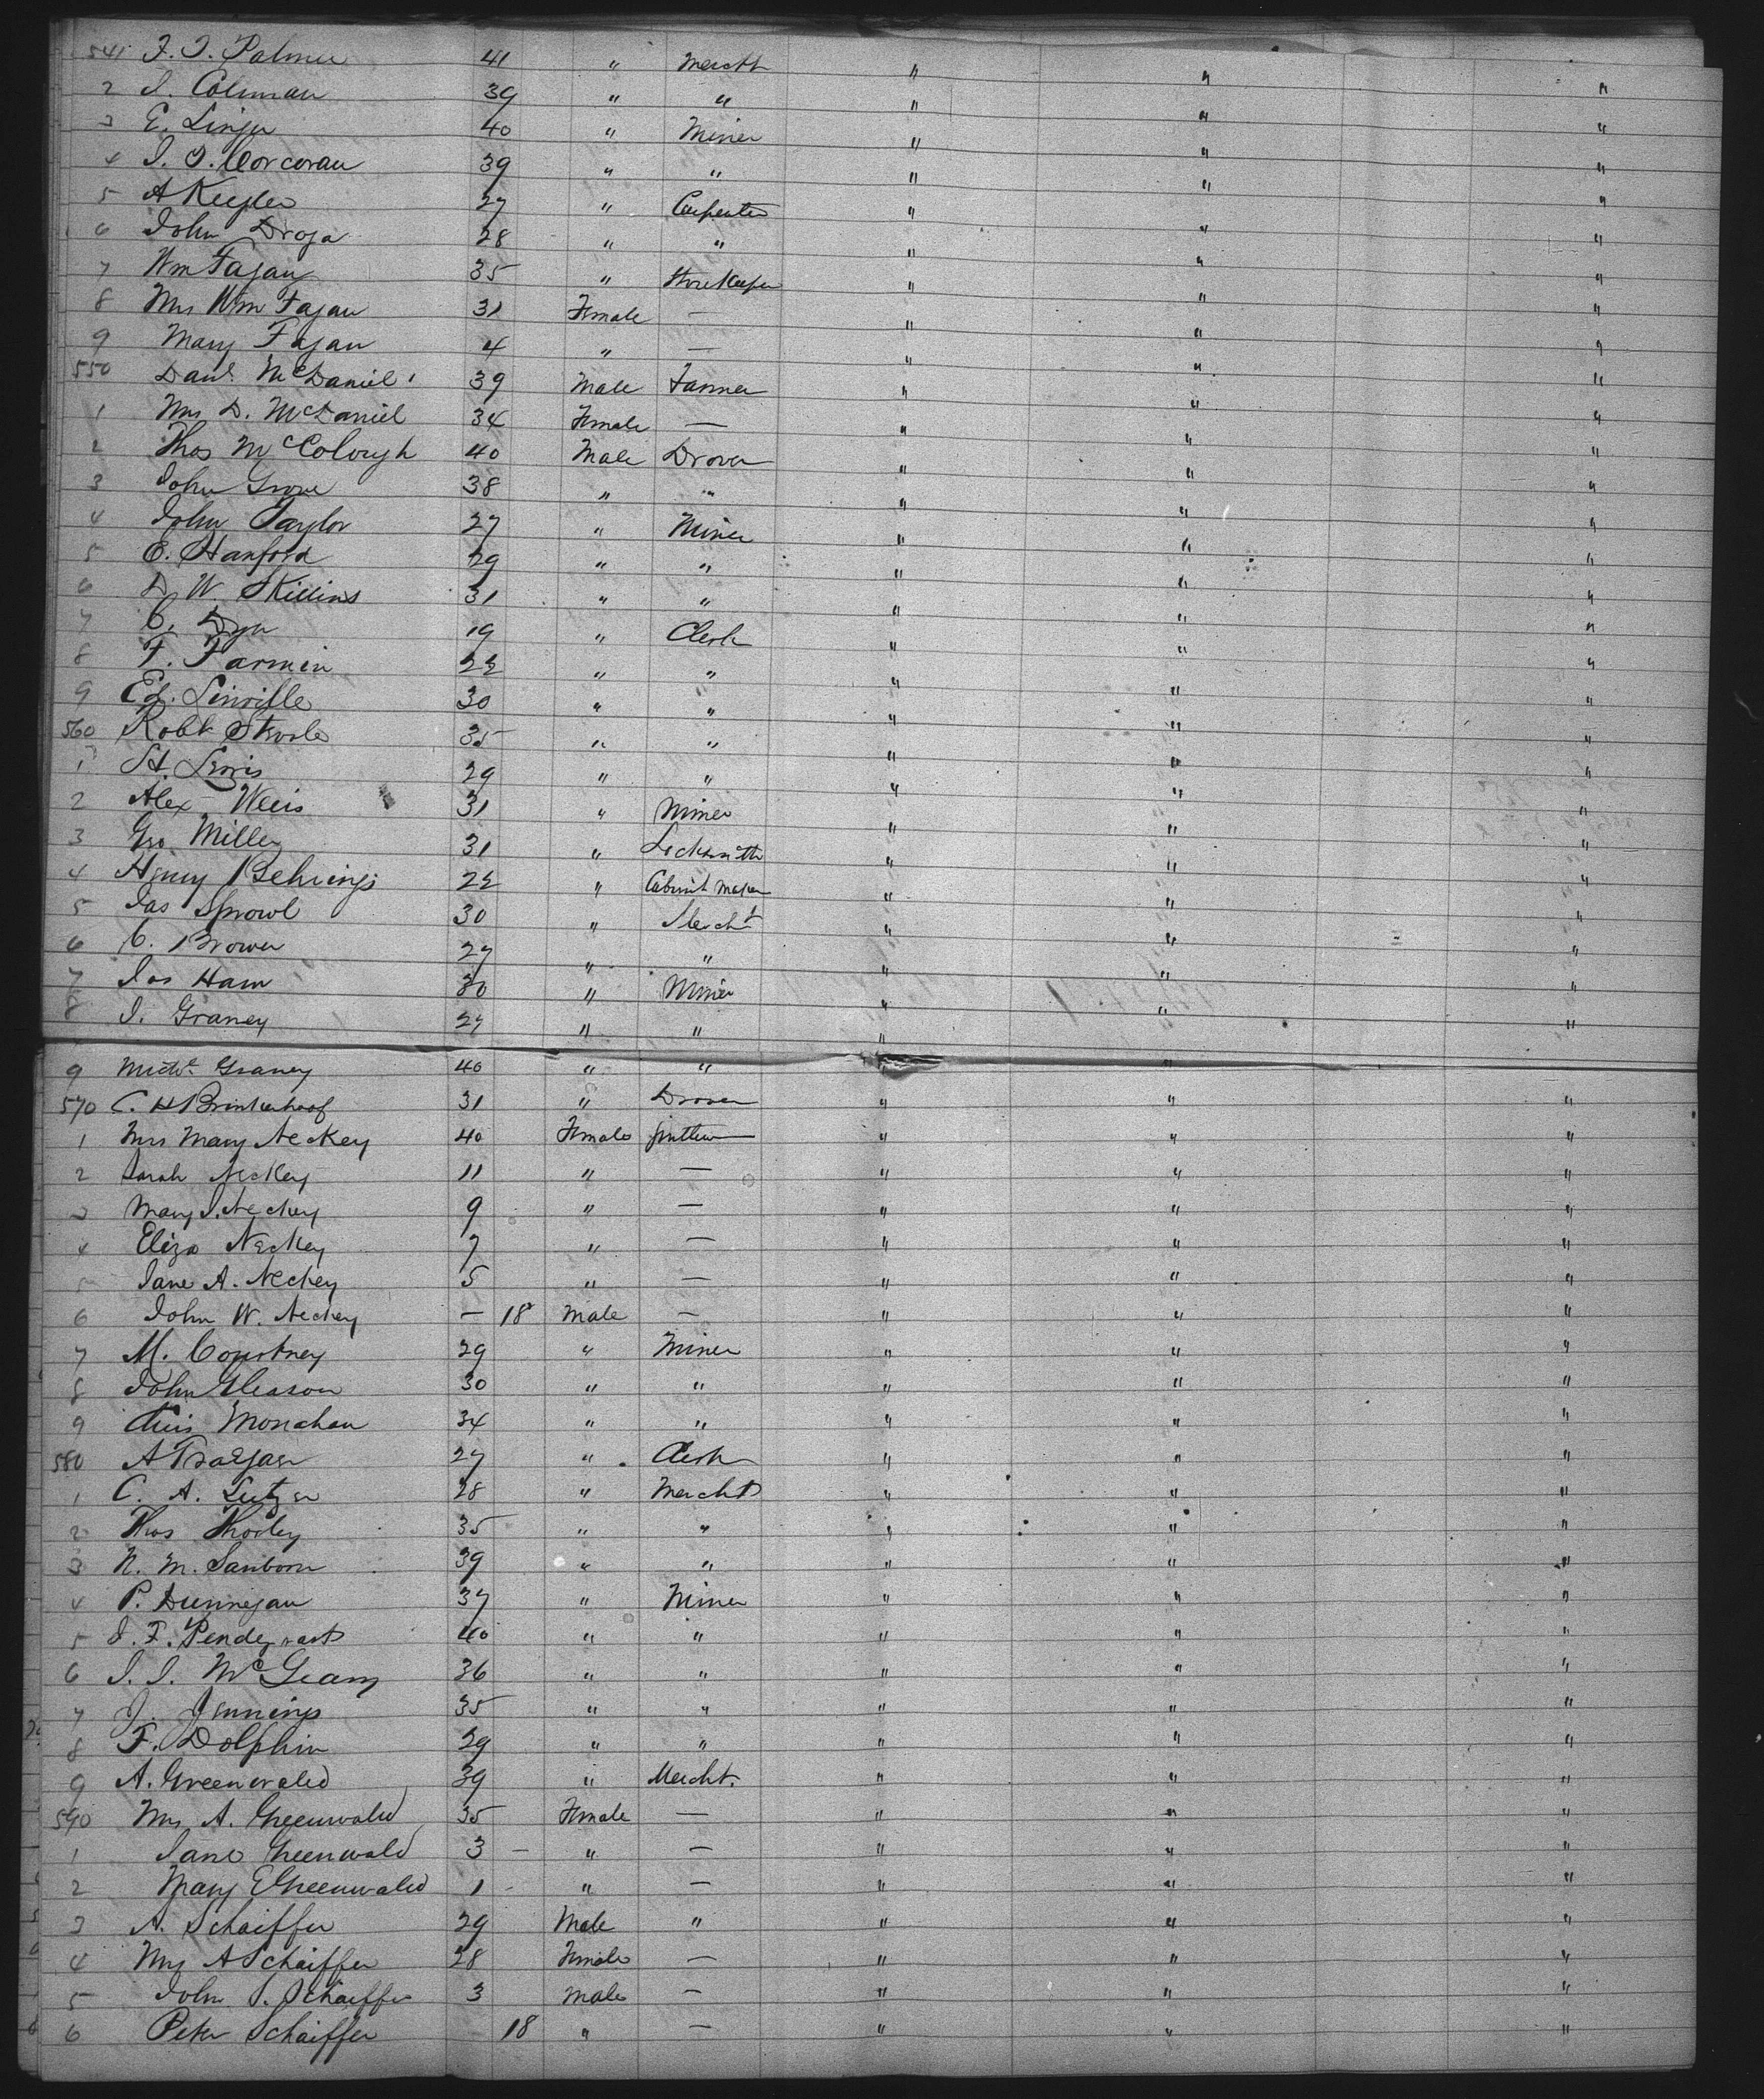 541 F. T. Palmer 41 " Mercht " " "
2 J. Colman 39 " " " " "
3 E. 40 " Miner " " "
4 J. O. Corcoran 39 " " " " "
5 A 27 " Carpenter " " "
6 John Droga 28 " " " " "
7 Wm Fagan 35 " Store Keeper " " "
8 Mrs Wm Fagan 31 Female — " " "
9 Mary Fagan 4 " — " " "
550 Danl. McDaniel 39 Male Farmer " " "
1 Mrs D. McDaniel 34 Female — " " "
2 Thos McColough 40 Male Drover " " "
3 John Grove 38 " " " " "
4 John Taylor 27 " Miner " " "
5 E. Hanford 29 " " " " "
6 D. W. Skillins 31 " " " " "
7 C. Dyer 19 " Clerk " " "
8 F. Farmin 22 " " " " "
9 Ed. Linville 30 " " " " "
560 Robt Steele 35 " " " " "
1 H. Lewis 29 " " " " "
2 Alex Weis 31 " Miner " " "
3 Geo Miller 31 " Locksmith " " "
4 Henry Behrings 22 " Cabinet Maker " " "
5 Jas Sprowl 30 " Mercht " " "
6 C. Brower 27 " " " " "
7 Jas Ham 30 " Miner " " "
8 J. Graney 27 " " " " "
9 Michl. Graney 40 " " " "
570 C. H Brinkerhoof 31 " Drover " " "
1 Mrs Mary Neckey 40 Female " " "
2 Sarah Neckey 11 " — " " "
3 Mary J. Neckey 9 " — " " "
4 Eliza Neckey 7 " — " " "
5 Jane A. Neckey 5 " — " " "
6 John W. Neckey — 18 Male — " " "
7 M. Courtney 29 " Miner " " "
8 John Gleason 30 " " " " "
9 Chris Monahan 34 " " " " "
580 A Traegar 27 " Clerk " " "
1 C. A. Lutzer 28 " Mercht " " "
2 Thos Thorley 35 " " " " "
3 N. M. Sanborn 39 " " " " "
4 P. Dunnegan 37 " Miner " " "
5 J. F. Pendegrast 40 " " " " "
6 J. J. McGeary 36 " " " " "
7 J. Jennings 35 " " " " "
8 F. Dolphin 29 " " " " "
9 A. Greenwald 39 " Mercht. " " "
590 Mrs A. Greenwald 35 Female — " " "
1 Jane Greenwald 3 — " — " " "
2 Mary E Greenwald 1 - " — " " "
3 A. Schaiffer 29 Male " " " "
4 Mrs A Schaiffer 28 Female — " " "
5 John S. Schaiffer 3 Male — " " "
6 Peter Schaiffer 18 " — " " "